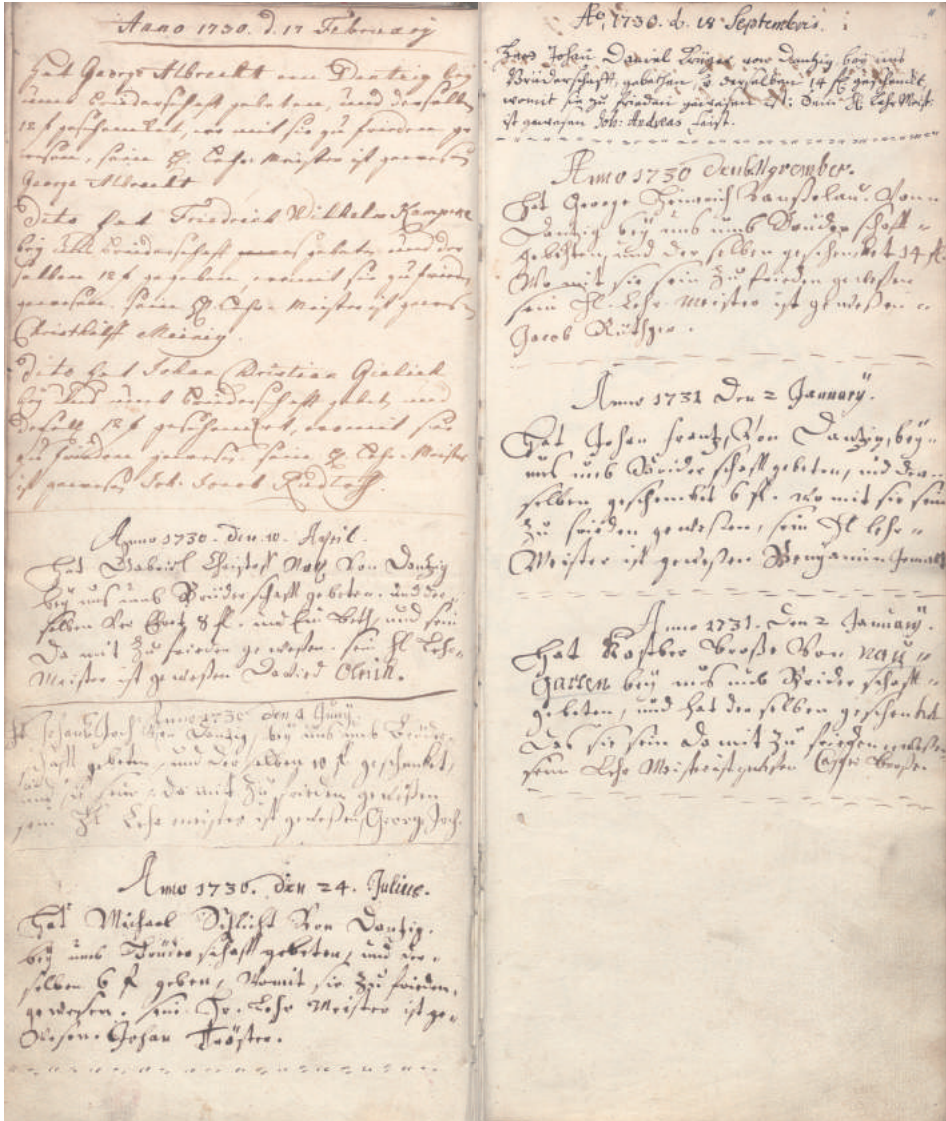 Anno 1730. d. 17 February
Hat George Albrecht von Dantzig bey
uns Bruderschaft gebeten, und derselben
12 f geschencket, wo mit sie zu frieden ge
wesen, sein H. Lehr-Meister ist gewesen
George Albrecht
dito hat Friedrich Wilhelm
bey uns Bruderschaft gebeten und der
selben 12 f gegeben, womit sie zu frieden
gewesen. sein H. Lehr-Meister ist gewesen
Christhoff
dito hat Johan Christian
bey uns umb Bruderschaft gebeten und
12 f geschencket, womit sie
zu frieden gewesen sein H. Lehr-Meister
ist gewesen Joh: Jacob
Anno 1730. Den 10. April.
Hat Gabriel Christof Von Dantzig
bey uns umb Brüderschaft gebeten. und der
selben 8 fl. und Ein und sein
Da mit Zu frieden gewesen. sein Hl Lehr-
Meister ist gewesen David
Anno 1730 den 4 Juny
Hat Johann Joch Von Dantzig, bey uns umb Brüder-
schafft gebeten, und der selben 10 f. geschencket,
und sie sein Da mit Zu frieden gewesen
sein Hl Lehr meister ist gewesen George Joch.
Anno 1730. Den 24. Julius.
Hat Michael Schlicht Von Dantzig.
bey uns Brüderschafft gebeten, und der-
selben 6 f geben, Womit sie Zu frieden,
gewesen. sein Hr. Lehr Meister ist ge-
wesen. Johan Tröster.
Ao, 1730. d. 18 Septembris.
Johan Daniel von Dantzig, bey uns
Brüderschafft, gebethen, derselben 14 fl geschenckt,
womit sie zu frieden gewesen Sein Hl Lehr Meist:
ist gewesen Joh: Andreas
Anno 1730 Den 6 November.
Hat George Heinrich Von
Dantzig bey uns umb Brüder schaft
gebethen, und der selben geschencket 14 fl.
Wo mit sie sein Zu frieden gewesen
sein Hl. Lehr Meister ist gewesen
Jacob Rüthger.
Anno 1731 Den 2 Januarÿ.
Hat Johan Frantz, Von Dantzig, bey
uns umb Brider schafft gebeten, und der
selben geschenckt 6 fl. wo mit sie sein
Zu frieden gewesen, sein Hl Lehr
Meister ist gewesen Benyamin
Anno 1731. Den 2 Januarÿ.
Hat Kasper Broße Von nau
Garten bey uns umb Brider schaft
gebeten, und hat der selben geschenckt
Das sie sein Da mit Zu frieden gewesen
sein Lehr Meister ist gewesen Casper Broße.